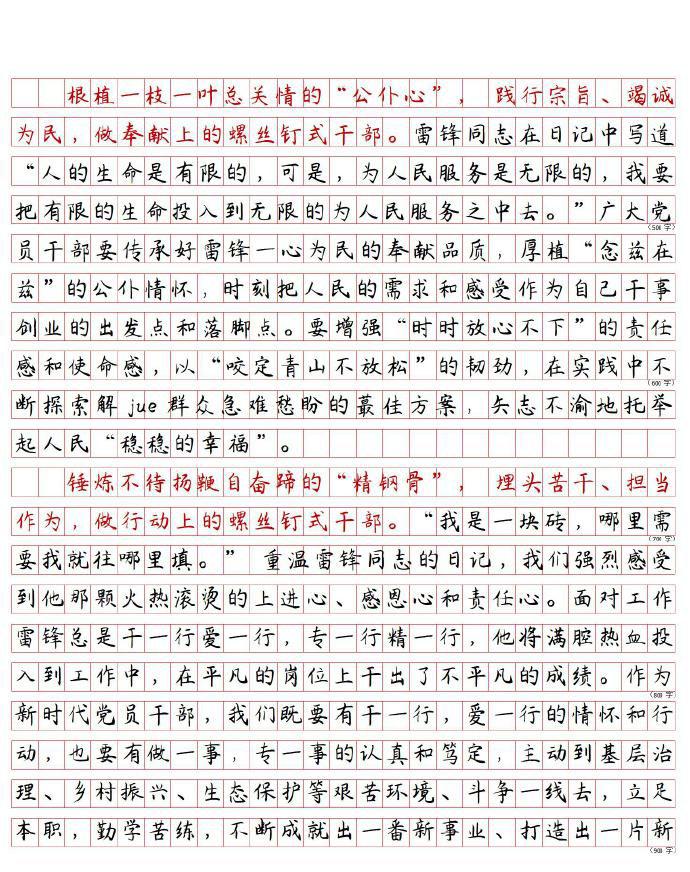 根植一枝一叶总关情的“公仆心”，践行宗旨、竭诚
为民，做奉献上的螺丝钉式干部。雷锋同志在日记中写道
“人的生命是有限的，可是，为人民服务是无限的，我要
把有限的生命投入到无限的为人民服务之中去。”广大党
(500字)
员干部要传承好雷锋一心为民的奉献品质，厚植“念兹在
兹”的公仆情怀，时刻把人民的需求和感受作为自己干事
创业的出发点和落脚点。要增强“时时放心不下”的责任
感和使命感，以“咬定青山不放松”的韧劲，在实践中不
(600字)
断探索解jue群众急难愁盼的最佳方案，矢志不渝地托举
起人民“稳稳的幸福”。
锤炼不待扬鞭自奋蹄的“精钢骨”，埋头苦干、担当
作为，做行动上的螺丝钉式干部。“我是一块砖，哪里需
(700字)
要我就往哪里填。”重温雷锋同志的日记，我们强烈感受
到他那颗火热滚烫的上进心、感恩心和责任心。面对工作
雷锋总是干一行爱一行，专一行精一行，他将满腔热血投
入到工作中，在平凡的岗位上干出了不平凡的成绩。作为
(800字)
新时代党员干部，我们既要有干一行，爱一行的情怀和行
动，也要有做一事，专一事的认真和笃定，主动到基层治
理、乡村振兴、生态保护等艰苦环境、斗争一线去，立足
本职，勤学苦练，不断成就出一番新事业、打造出一片新
(900字)